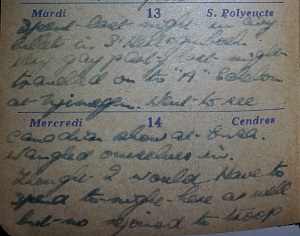 Mardi 13 S. Polyeucte
Spent last night in my
billet in S'
Very gay party last night
travelled on the "A" Echelon
at Nijmegen. Went to see
Mercredi 14 Cendres
Canadian show at
Wangled ourselves in.
Thought I would have to
spend to-night here as well
but no rejoined to troop